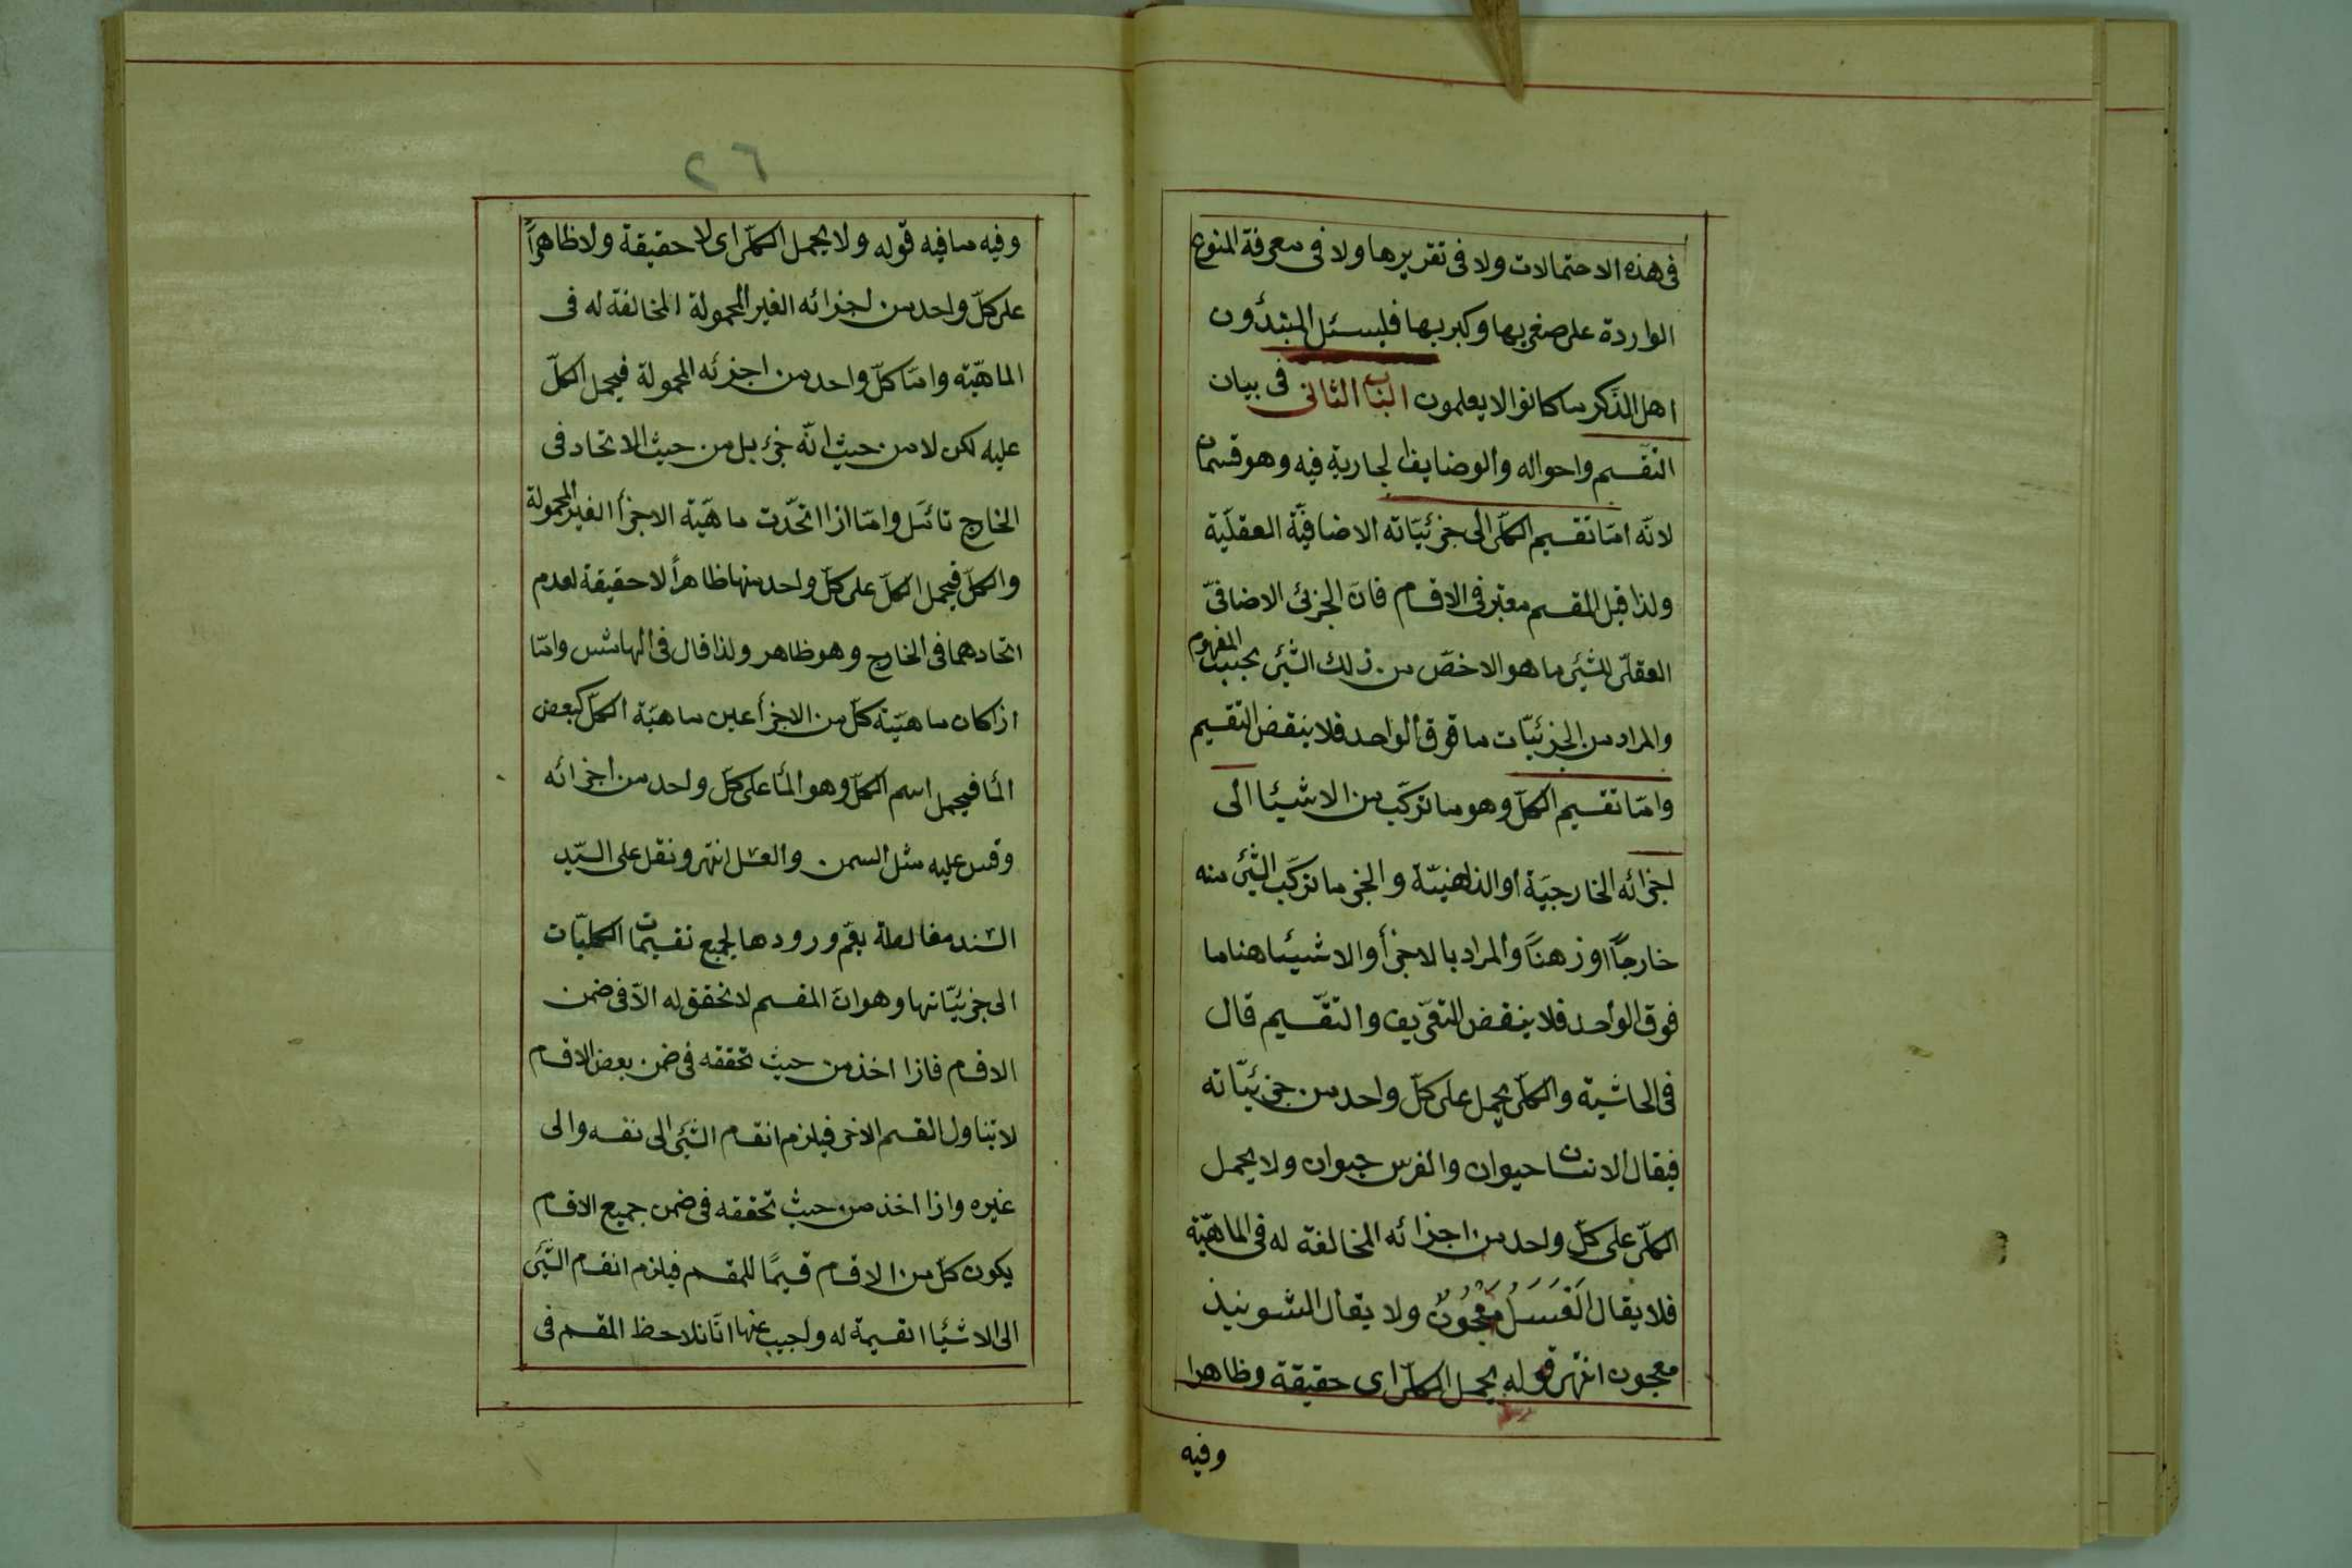 فى هذه الاحتمالات ولا فى تقريرها ولا فى معرفة المنوع
الواردة على صغريها وكبريها فليسئل المبتدؤن
اهل الذكر ما كانوا لا يعلمون الباب الثانى فى بيان
التقسيم واحواله والوضايف الجارية فيه وهو قسمان
لانّه امّا تقسيم الكلّى الى جزئيّاته الاضافيّة العقليّة
ولذا قيل المقسم معتبر فى الاقسام فانّ الجزئى الاضافىّ
العقلىّ للشيئ ما هو الاخصّ من ذلك الشيئ بحسب المفهوم
والمراد من الجزئيّات ما فوق الواحد فلا ينقض التقسيم
وامّا تقسيم الكلّ وهو ما تركّب من الاشيئا الى
اجزائه الخارجيّة أو الذهنيّة والجزء ما تركّب الشيئ منه
خارجًا او ذهنًا والمراد بالاجزأ والاشيئا هنا ما
فوق الواحد فلا ينقض التعريف والتقسيم قال
فى الحاشية والكلّى يحمل على كلّ واحد من جزئيّاته
فيقال الانسان حيوان والفرس حيوان ولا يحمل
الكلّ على كلّ واحد من اجزائه المخالفة له فى الماهيّة
فلا يقال العَسَلُ مَعْجُونٌ ولا يقال الشونيذ
معجون انتهى قوله يحمل الكلّى اى حقيقة وظاهرا
وفيه
٢٦
وفيه ما فيه قوله ولا يحمل الكلّ اى لا حقيقة ولا ظاهراً
على كلّ واحد من اجزائه الغير المحمولة المخالفة له فى
الماهيّة وامّا كلّ واحد من اجزئه المحمولة فيحمل الكلّ
عليه لكن لا من حيث انّه جزء بل من حيث الاتحاد فى
الخارج تأمّل وامّا اذا اتحدّت ماهيّة الاجزأ الغير المحمولة
والكلّ فيحمل الكلّ على كلّ واحد منها ظاهراً لا حقيقة لعدم
اتحادهما فى الخارج وهو ظاهر ولذا قال فى الهامش وامّا
اذا كان ماهيّة كلّ من الاجزأ عين ماهيّة الكلّ كبعض
المأ فيحمل اسم الكلّ وهو المأ على كلّ واحد من اجزائه
وقس عليه مثل السمن والعسل انتهى ونقل على السيّد
السّند مغالطة يعمّ ورودها لجميع تقسيمات الكليّات
الى جزئيّاتها وهو انّ المقسم لا تحقق له الاّ فى ضمن
الاقسام فاذا اخذ من حيث تحققه فى ضمن بعض الاقسام
لا يتناول القسم الاخر فيلزم انقسام الشيئ الى نفسه والى
غيره واذا اخذ من حيث تحققه فى ضمن جميع الاقسام
يكون كلّ من الاقسام قسيمًا للمقسم فيلزم انقسام الشيئ
الى الاشيئا القسيمة له واجيب عنها انّا نلاحظ المقسم فى